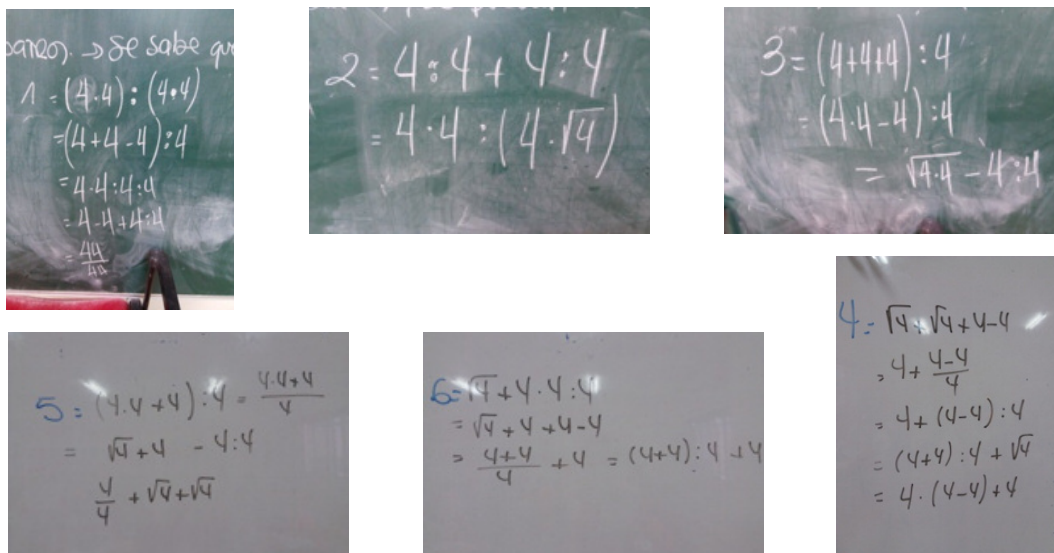 → Se sabe que
1 = (4·4) : (4·4)
= (4+4-4) : 4
= 4·4:4:4
= 4-4+4:4
= 44/44
2 = 4:4 + 4:4
= 4·4 : (4·√4)
3 = (4+4+4) : 4
= (4·4-4) : 4
= √4·4 - 4:4
4 = √4 + √4 + 4-4
= 4 + (4-4)/4
= 4 + (4-4) : 4
= (4+4) : 4 + √4
= 4·(4-4)+4
5 = (4·4+4) : 4 = (4·4+4)/4
= √4+4 - 4:4
4/4 + √4+√4
6 = √4 + 4·4:4
= √4 + 4 + 4-4
= (4+4)/4 + 4 = (4+4) : 4 + 4